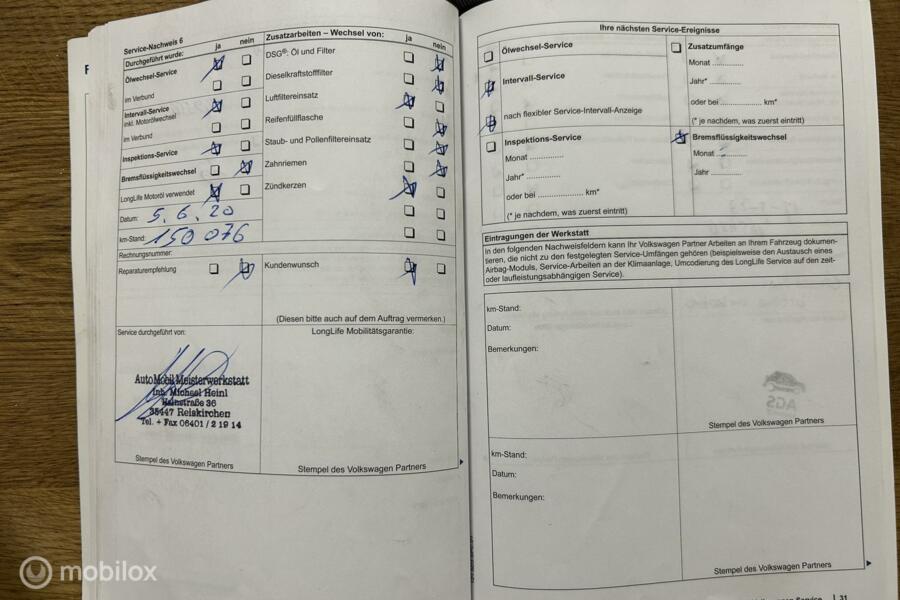 Service-Nachweis 6
Durchgeführt wurde: ja nein
Ölwechsel-Service
im Verbund
Intervall-Service
inkl. Motorölwechsel
im Verbund
Inspektions-Service
Bremsflüssigkeitswechsel
LongLife Motoröl verwendet
Datum: 5.6.20
km-Stand: 150 076
Rechnungsnummer:
Reparaturempfehlung
Zusatzarbeiten – Wechsel von: ja nein
DSG®: Öl und Filter
Dieselkraftstofffilter
Luftfiltereinsatz
Reifenfüllflasche
Staub- und Pollenfiltereinsatz
Zahnriemen
Zündkerzen
Kundenwunsch
(Diesen bitte auch auf dem Auftrag vermerken.)
Service durchgeführt von:
AutoMobil Meisterwerkstatt
Inh. Michael Heinl
Hainstraße 36
35447 Reiskirchen
Tel. + Fax 06401 / 2 19 14
Stempel des Volkswagen Partners
LongLife Mobilitätsgarantie:
Stempel des Volkswagen Partners
Ihre nächsten Service-Ereignisse
Ölwechsel-Service
Intervall-Service
nach flexibler Service-Intervall-Anzeige
Inspektions-Service
Monat ..............
Jahr* ..............
oder bei ................... km*
(* je nachdem, was zuerst eintritt)
Zusatzumfänge
Monat .............
Jahr* .............
oder bei ................. km*
(* je nachdem, was zuerst eintritt)
Bremsflüssigkeitswechsel
Monat .............
Jahr .............
Eintragungen der Werkstatt
In den folgenden Nachweisfeldern kann Ihr Volkswagen Partner Arbeiten an Ihrem Fahrzeug dokumen-
tieren, die nicht zu den festgelegten Service-Umfängen gehören (beispielsweise den Austausch eines
Airbag-Moduls, Service-Arbeiten an der Klimaanlage, Umcodierung des LongLife Service auf den zeit-
oder laufleistungsabhängigen Service).
km-Stand:
Datum:
Bemerkungen:
Stempel des Volkswagen Partners
km-Stand:
Datum:
Bemerkungen:
Stempel des Volkswagen Partners
31
mobilox